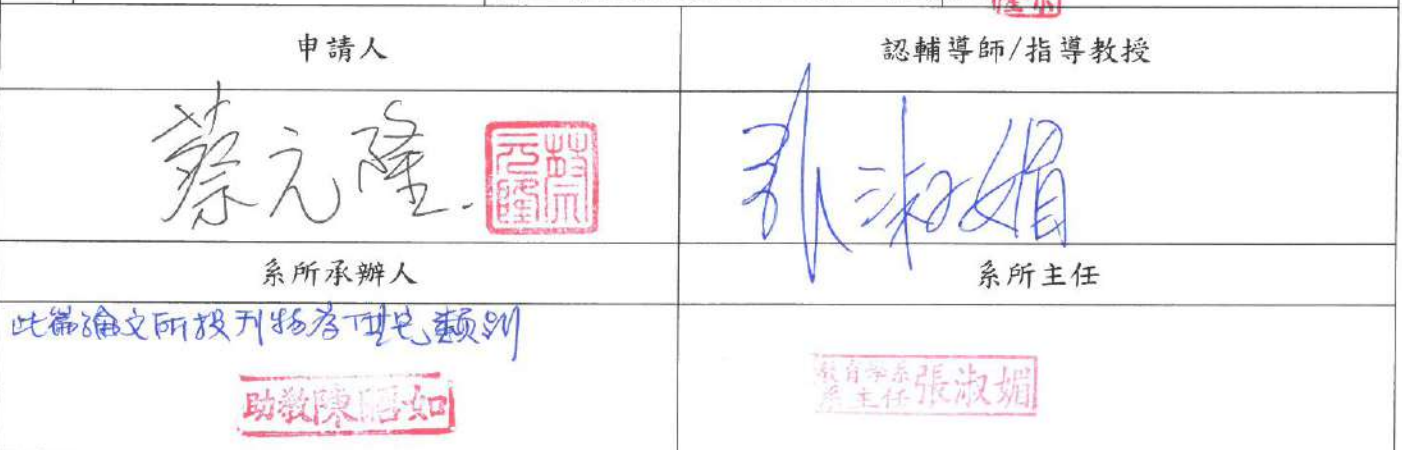 申請人
認輔導師/指導教授
蔡元隆.
蔡元隆
張淑媚
系所承辦人
系所主任
此篇論文所投刊物為其他類別
助教陳如
教育學系
系主任
張淑媚